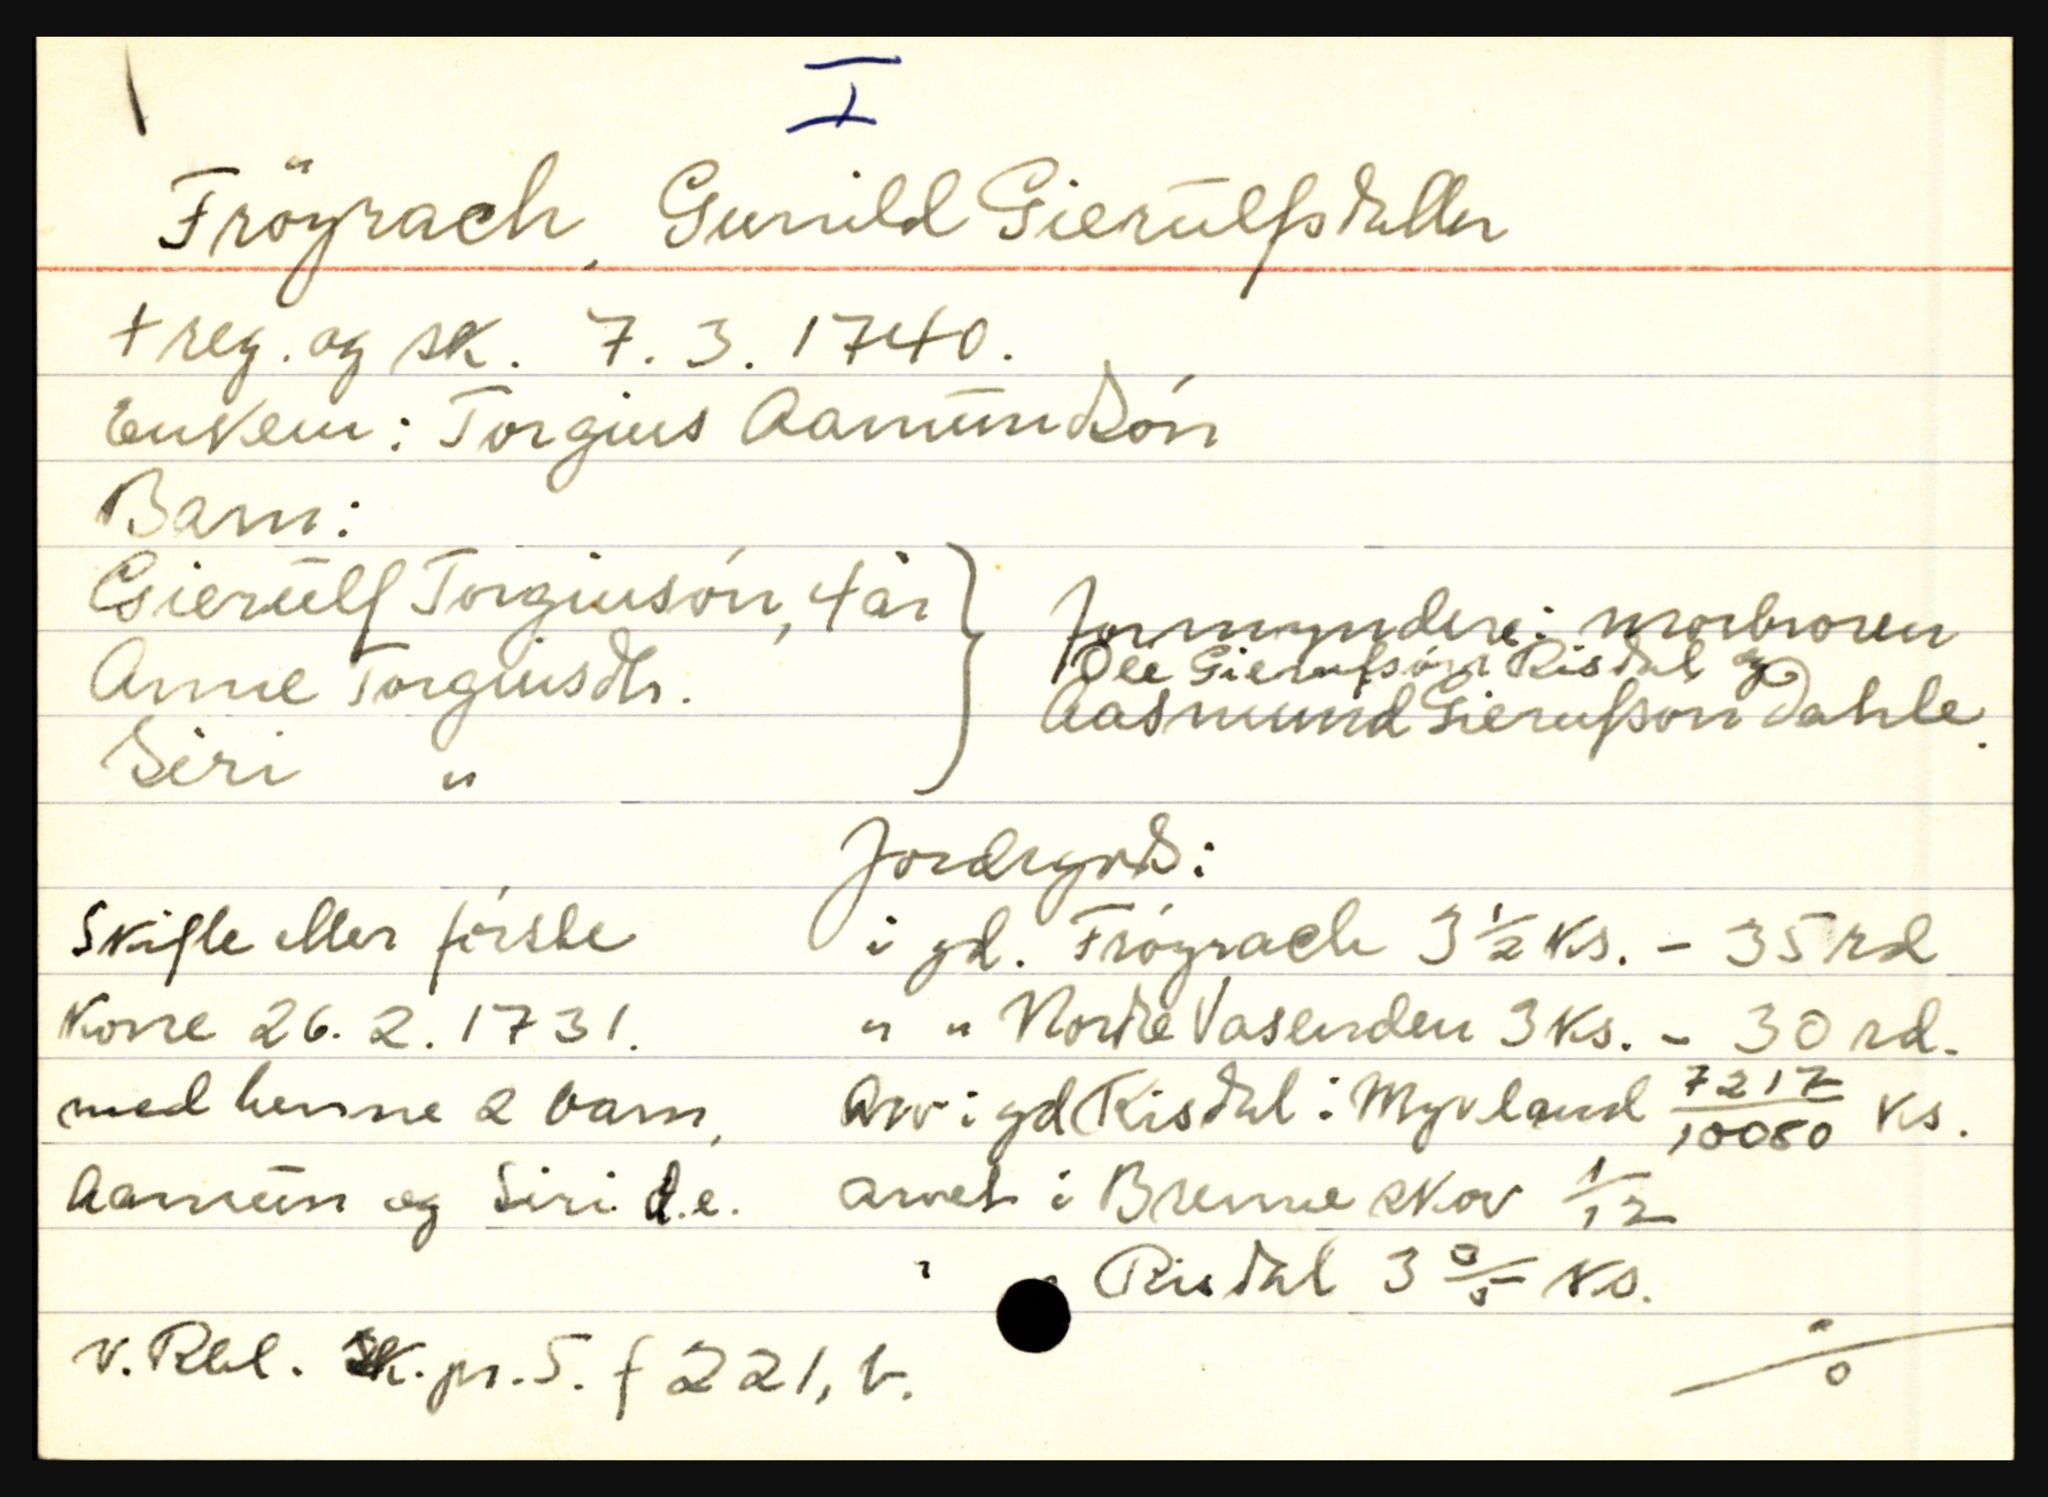 I
Fröyrach, Gunild Gierülfsdatter
+ reg. og sk. 7. 3. 1740.
Enkem: Torgius Aamündsón
Barn:
Gierülf Torgiusón, 4 år
Anne Torgiusdtr.
Siri "
formyndere: morbroren
Ole Gierulfsón Risdal og
Aasmund Gierulfson Dahle.
Jordegods:
i gd. Fróyrach 3 1/2 ks. - 35 rd
" " Nordre Vasenden 3 ks. - 30 rd.
Arv i gd Risdal i Myvland 7217/10080 ks.
arvet i Brenne skov 1/12
" " Risdal 3 3/5 ks.
Skifte etter første
kone 26. 2. 1731.
med henne 2 barn,
Aamün og Siri d.e.
N. Rbl. Sk. pr. 5. f 221, b.